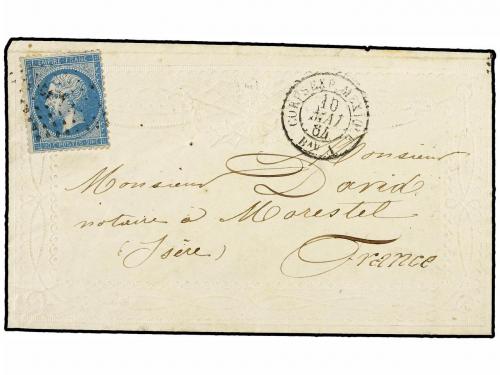 EMPIRE FRANC
POSTES
CORPS EXP. MEXIQUE
10
MAI
64
Bau A
Monsieur
Monsieur David
notaire à Morestel
(Isère) France